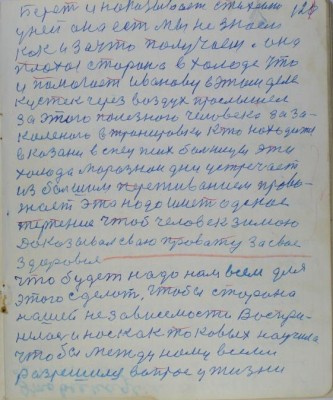 берет и наказывает стихею 127
у ней она ест мы не знаем
как и за что получаем. она
плохая сторона в холоде что
и помогает иванову в этим деле
кустик через воздух промышлен
за этого полезного человека за за
каленого в тренировки кто находится
в казани в спец псих больницы эти
холода морозном дни встречает
из большим переживанием прово-
жает это надо имет адское
терпение чтоб человек зимою
доказывал сваю правату за свае
здоровие
что будет надо нам всем для
этого сделат, чтобы сторона
нашей независемости
нилас и нас как таковых научила
чтобы между нами всеми
разрешился вапрос у жизни